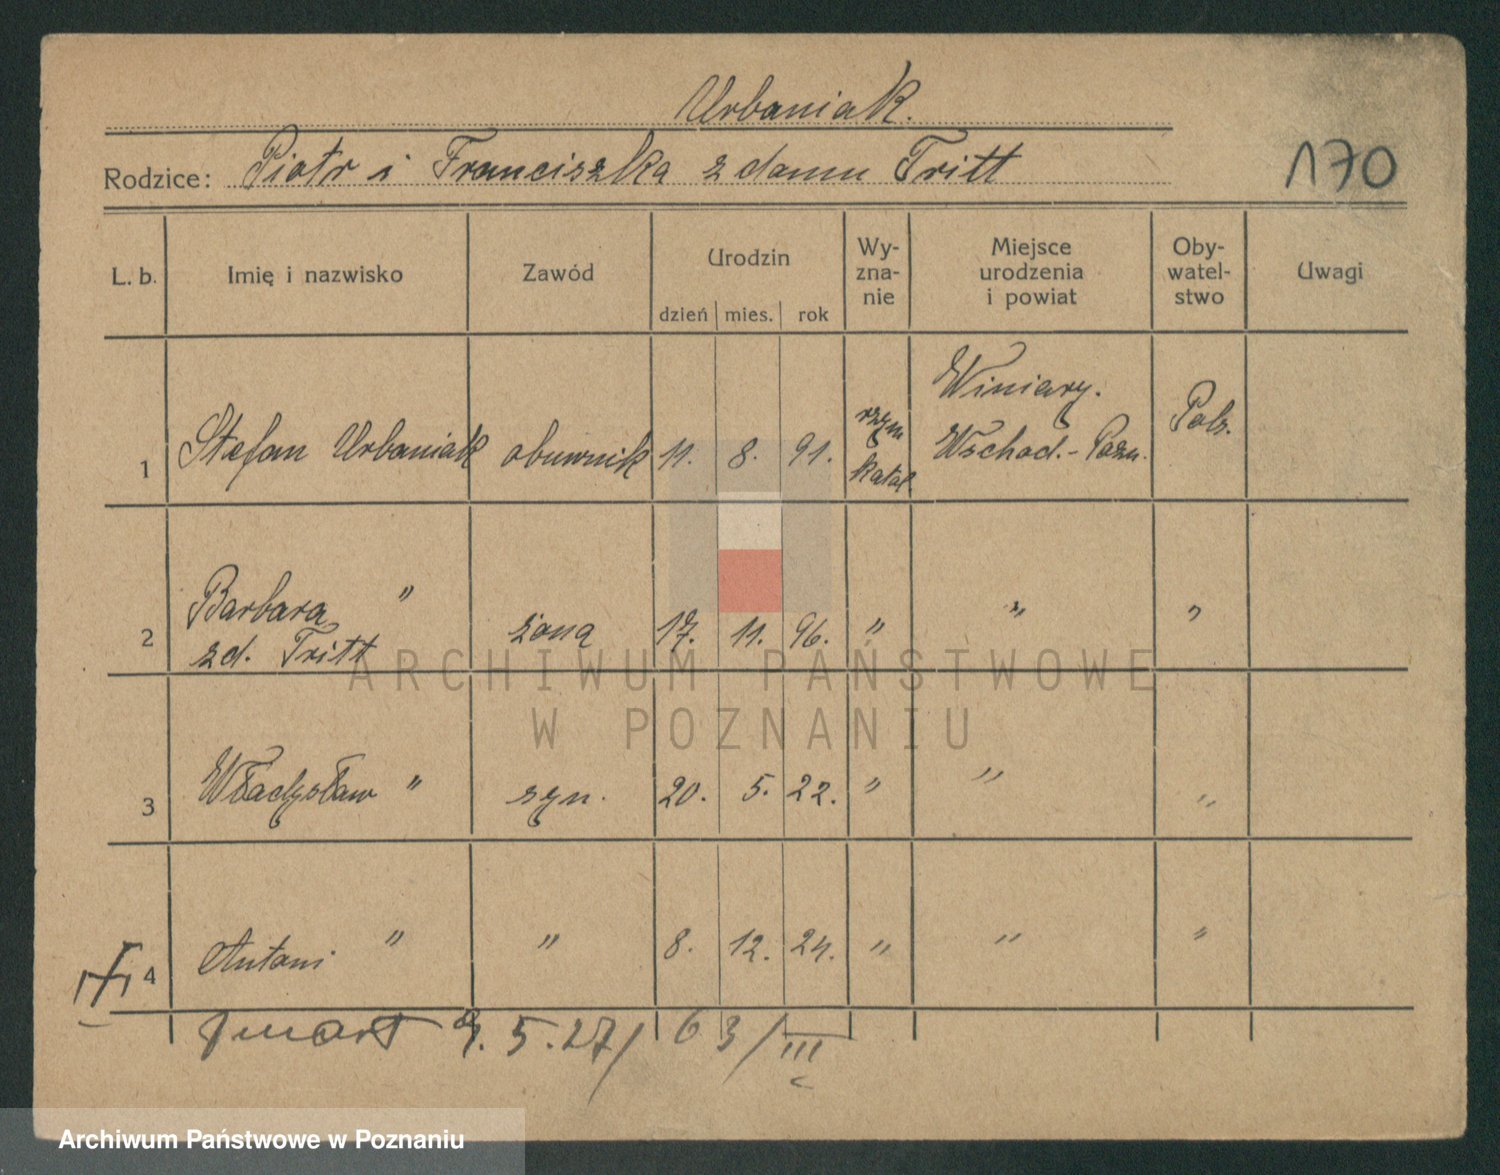 Urbaniak.
Rodzice: Piotr i Franciszka z domu Tritt
170
L. b. Imię i nazwisko Zawód Urodzin dzień mies. rok Wy-zna-nie Miejsce urodzenia i powiat Oby-watel-stwo Uwagi
1 Stefan Urbaniak obuwnik 11. 8. 91. rzym katol. Winiary. Wschod.-Pozn. Pols.
2 Barbara " zd. Tritt żona 17. 11. 96. " " "
3 Władysław " syn. 20. 5. 22. " " "
4 Antoni " " 8. 12. 24. " " "
zmarł 9. 5. 27/ 63/III
ARCHIWUM PAŃSTWOWE
W POZNANIU
Archiwum Państwowe w Poznaniu